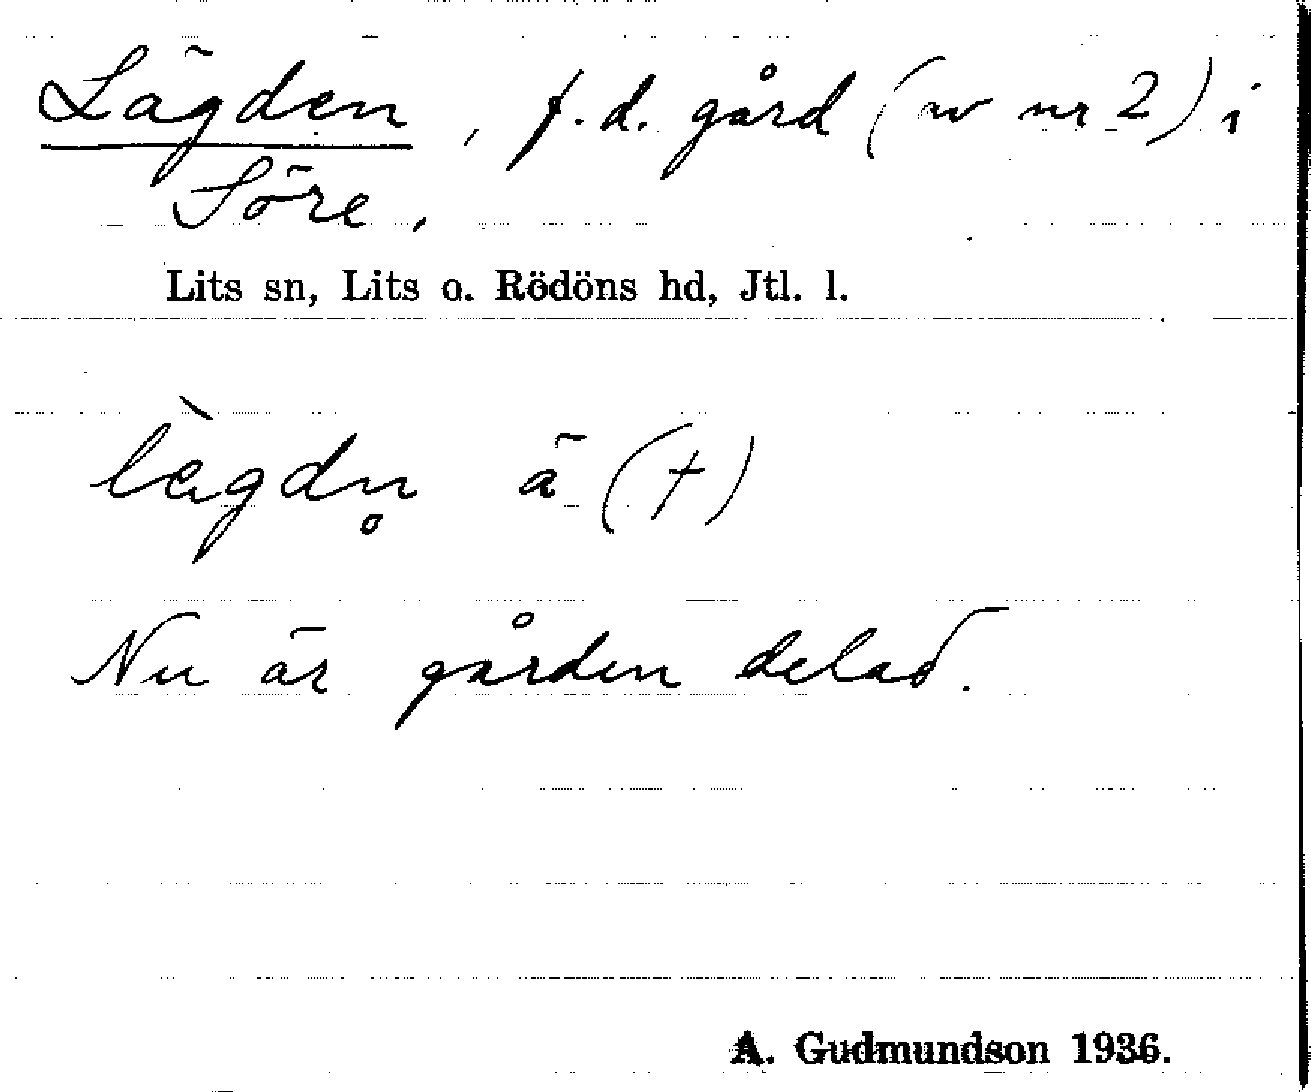 Lägden, f.d. gård (av nr 2) i
Söre.
Lits sn, Lits o. Rödöns hd, Jtl. l.
lägdn̥ ä (+)
Nu är gården delad.
A. Gudmundson 1936.